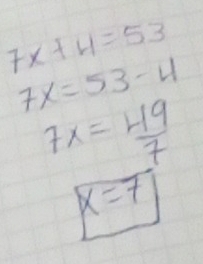 7x+4=53
7x=53-4
7x=49/7
x=7